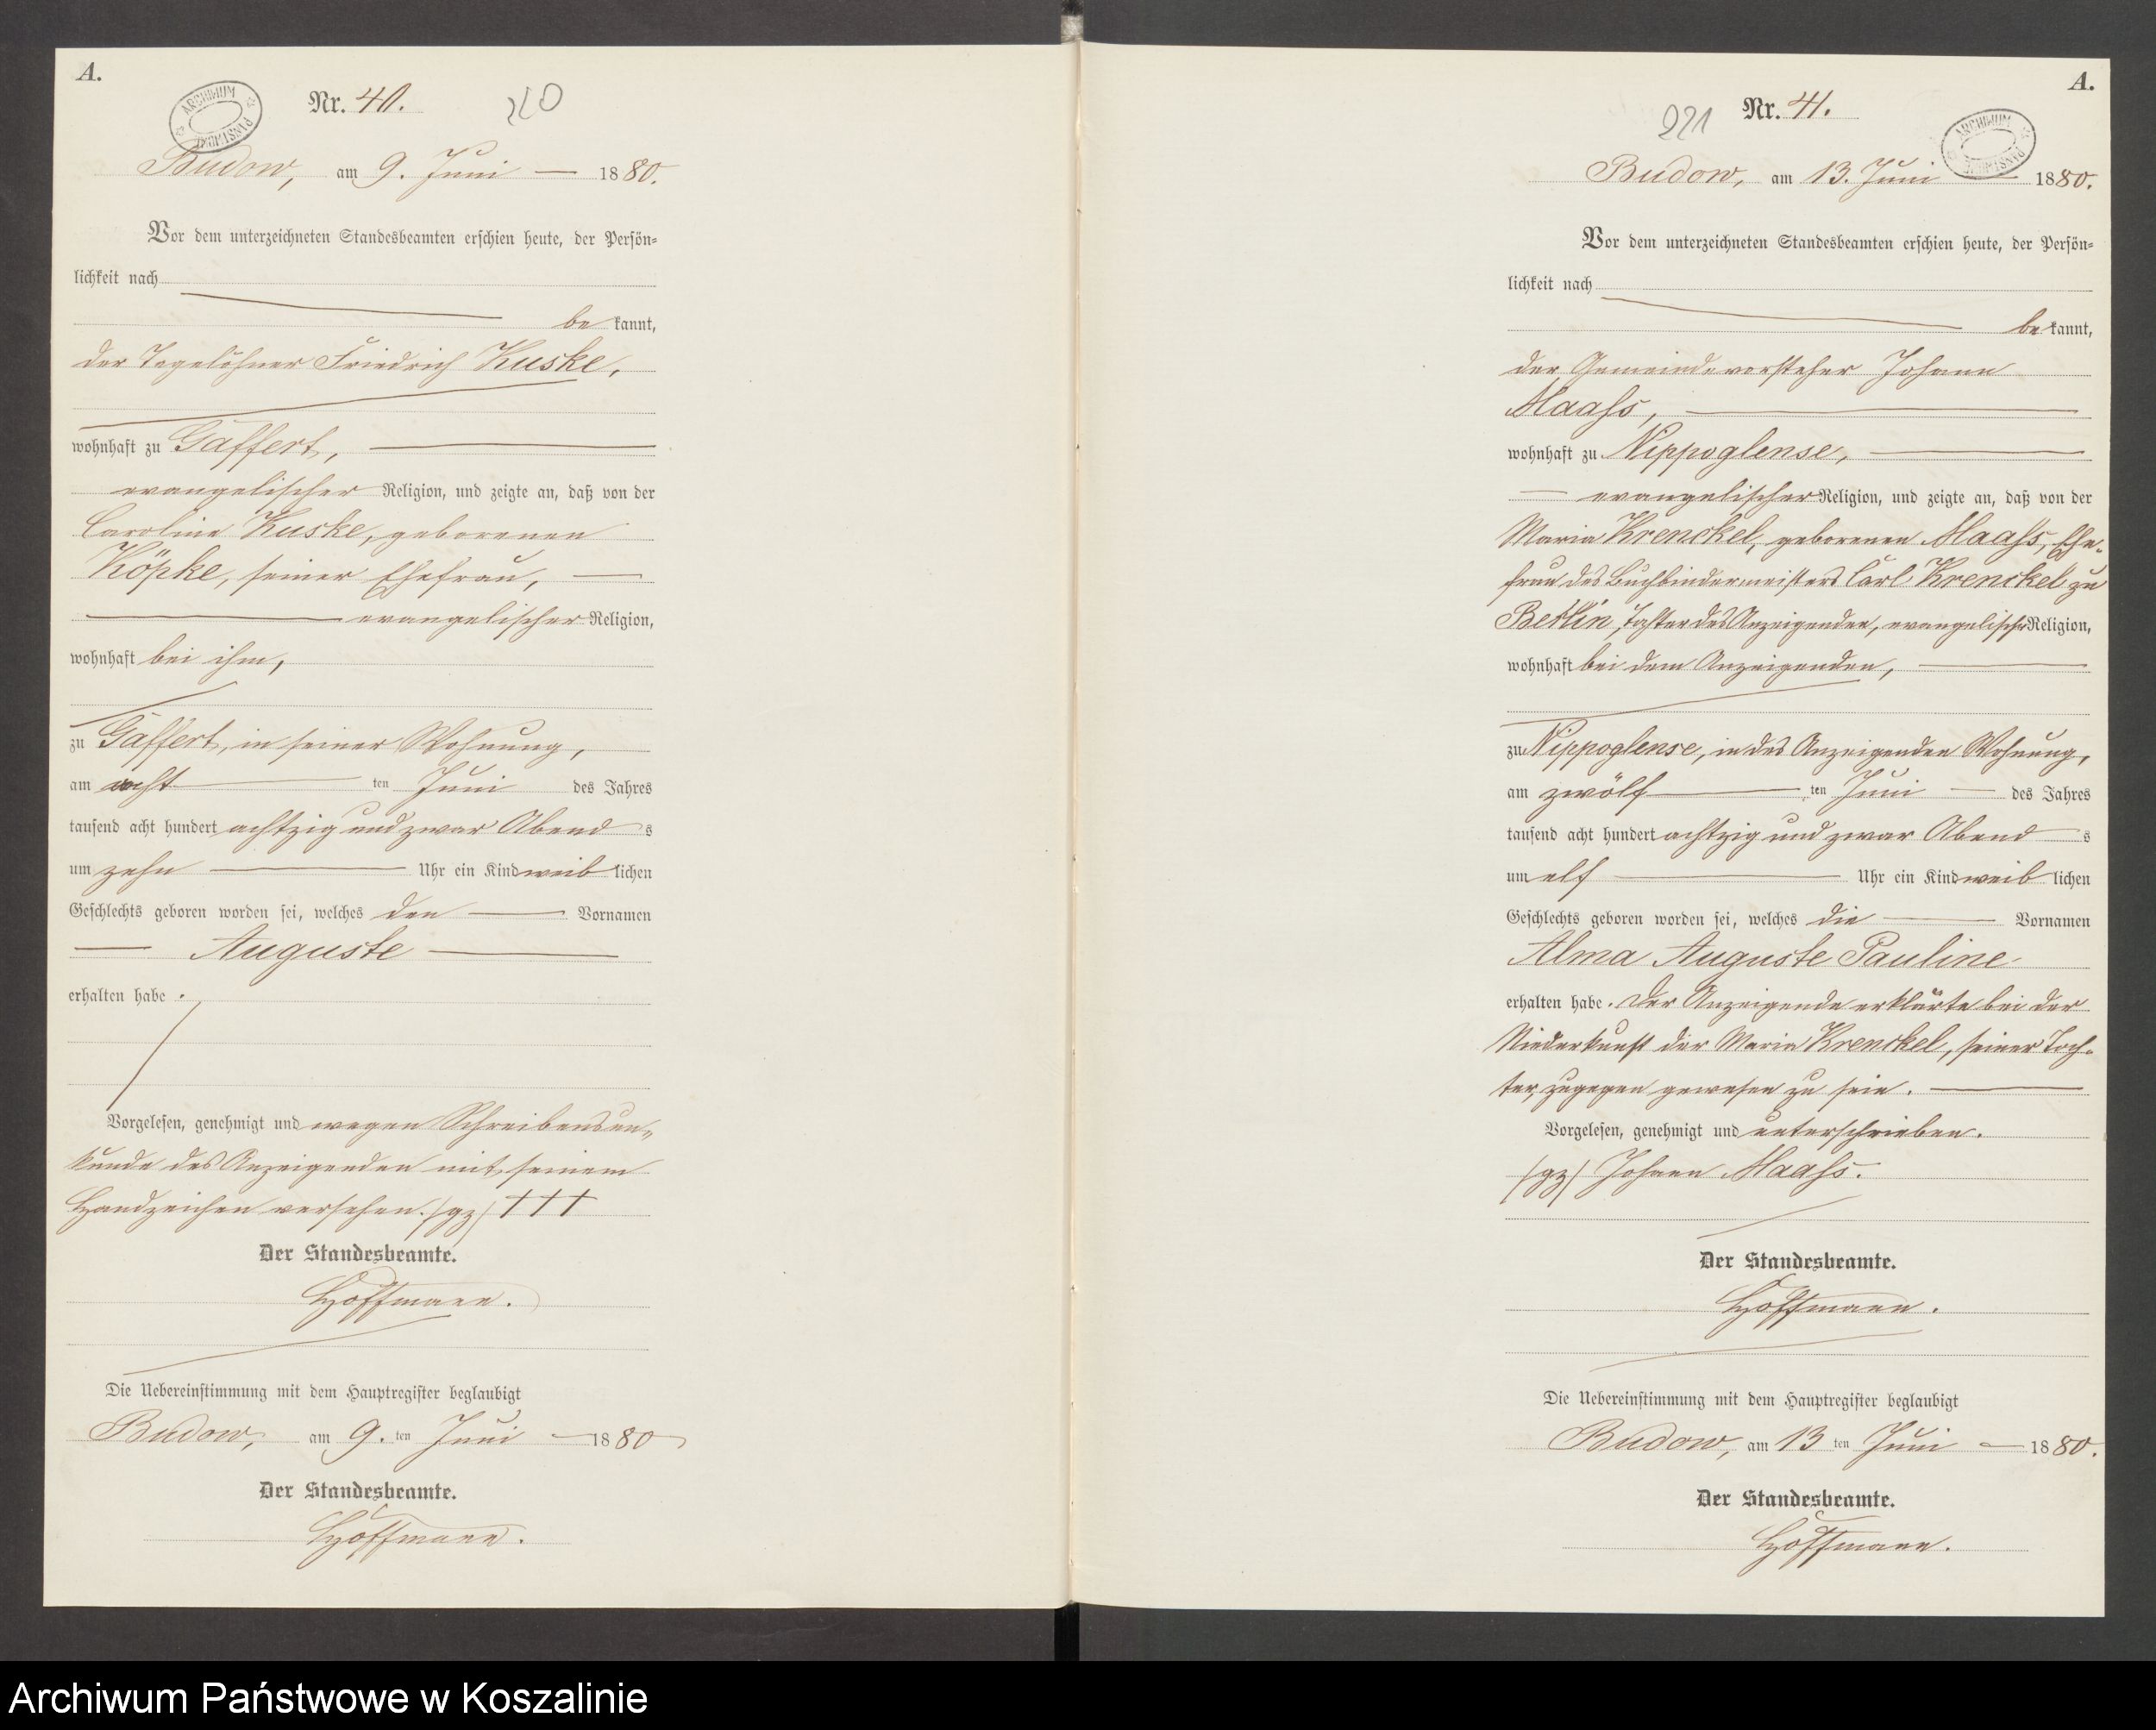 A.
ARCHIWUM PAŃSTWOWE
Nr. 40.
220
Budow, am 9. Juni — 1880.
Vor dem unterzeichneten Standesbeamten erschien heute, der Persön-
lichkeit nach
be kannt,
der Tagelöhner Friedrich Kuske,
wohnhaft zu Gaffert,
evangelischer Religion, und zeigte an, daß von der
Caroline Kuske, geborenen
Köpke, seiner Ehefrau,
evangelischer Religion,
wohnhaft bei ihm,
zu Gaffert, in seiner Wohnung,
am acht ten Juni des Jahres
tausend acht hundert achtzig und zwar Abend s
um zehn Uhr ein Kind weib lichen
Geschlechts geboren worden sei, welches den Vornamen
Auguste
erhalten habe .
Vorgelesen, genehmigt und wegen Schreibensun-
kunde des Anzeigenden mit seinem
Handzeichen versehen. (gz) +++
Der Standesbeamte.
Hoffmann.
Die Uebereinstimmung mit dem Hauptregister beglaubigt
Budow, am 9. ten Juni — 1880
Der Standesbeamte.
Hoffmann.
A.
Nr. 41.
221
ARCHIWUM PAŃSTWOWE
Budow, am 13. Juni — 1880.
Vor dem unterzeichneten Standesbeamten erschien heute, der Persön-
lichkeit nach
be kannt,
der Gemeindevorsteher Johann
Maaß,
wohnhaft zu Nippoglense,
evangelischer Religion, und zeigte an, daß von der
Maria Krenckel, geborenen Maaß, Ehe-
frau des Buchbindermeisters Carl Krenckel zu
Berlin, Tochter des Anzeigenden, evangelischer Religion,
wohnhaft bei dem Anzeigenden,
zu Nippoglense, in des Anzeigenden Wohnung,
am zwölf ten Juni — des Jahres
tausend acht hundert achtzig und zwar Abend s
um elf Uhr ein Kind weib lichen
Geschlechts geboren worden sei, welches die Vornamen
Alma Auguste Pauline
erhalten habe. Der Anzeigende erklärte bei der
Niederkunft der Maria Krenckel, seiner Toch-
ter, zugegen gewesen zu sein.
Vorgelesen, genehmigt und unterschrieben.
(gz) Johann Maaß.
Der Standesbeamte.
Hoffmann.
Die Uebereinstimmung mit dem Hauptregister beglaubigt
Budow, am 13 ten Juni — 1880.
Der Standesbeamte.
Hoffmann.
Archiwum Państwowe w Koszalinie